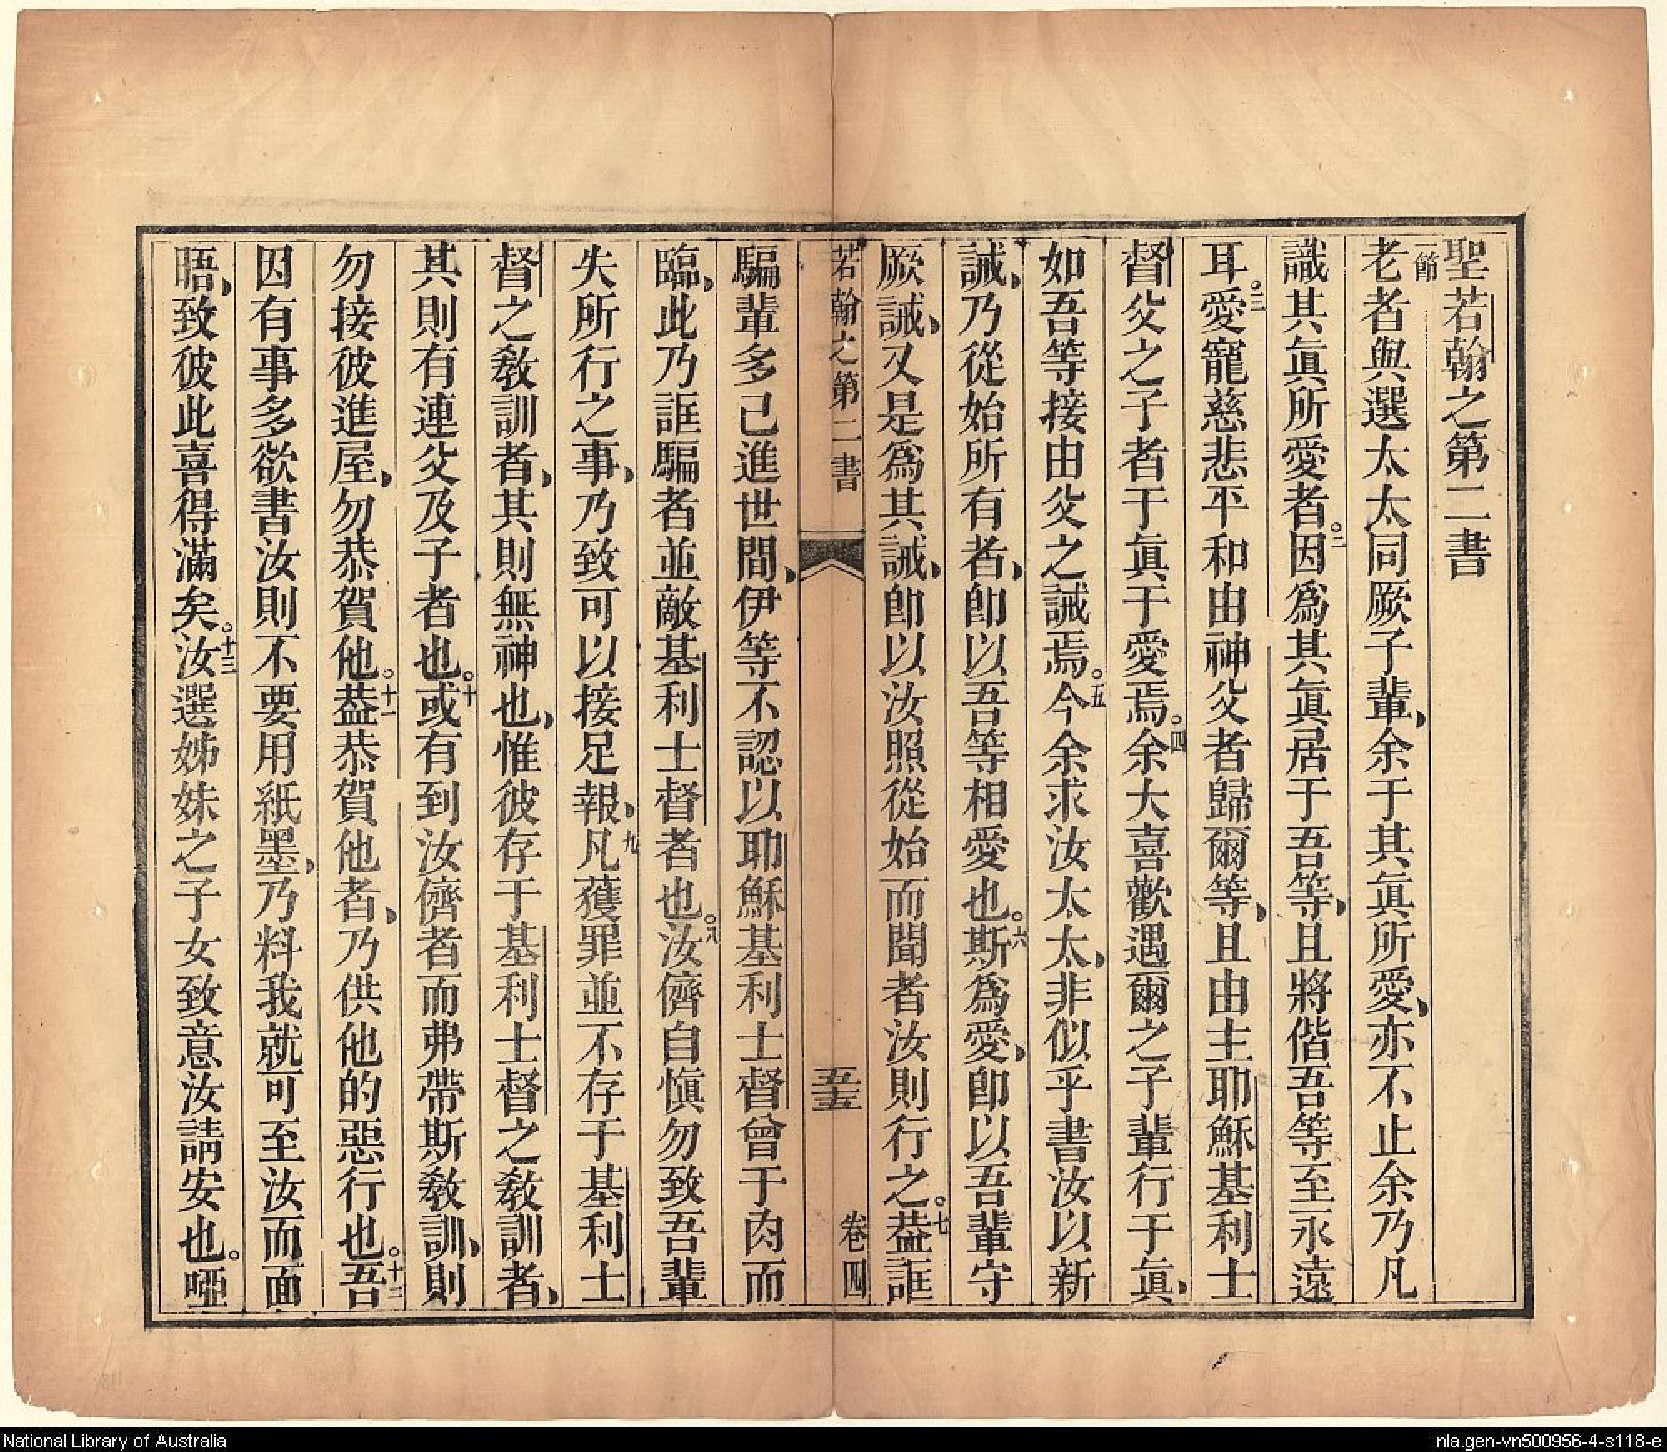 聖若翰之第二書
一節老者與選太太同厥子輩、余于其眞所愛、亦不止余乃凡
識其眞所愛者。二因爲其眞居于吾等、且將偕吾等至永遠
耳。三愛寵慈悲平和由神父者歸爾等、且由主耶穌基利士
督父之子者于眞于愛焉。四余大喜歡遇爾之子輩行于眞、
如吾等接由父之誡焉。五今余求汝太太、非似乎書汝以新
誡、乃從始所有者、卽以吾等相愛也。六斯爲愛、卽以吾輩守
厥誡、又是爲其誡、卽以汝照從始而聞者汝則行之。七蓋誆
若翰之第二書
五五
卷四
騙輩多已進世間、伊等不認以耶穌基利士督曾于肉而
臨、此乃誆騙者並敵基利士督者也。八汝儕自愼勿致吾輩
失所行之事、乃致可以接足報、九凡獲罪並不存于基利士
督之敎訓者、其則無神也、惟彼存于基利士督之敎訓者、
其則有連父及子者也。十或有到汝儕者而弗帶斯敎訓、則
勿接彼進屋、勿恭賀他。十一蓋恭賀他者、乃供他的惡行也。十二吾
因有事多欲書汝則不要用紙墨、乃料我就可至汝而面
晤、致彼此喜得滿矣。十三汝選姊妹之子女致意汝請安也。啞
National Library of Australia
nla.gen-vn500956-4-s118-e